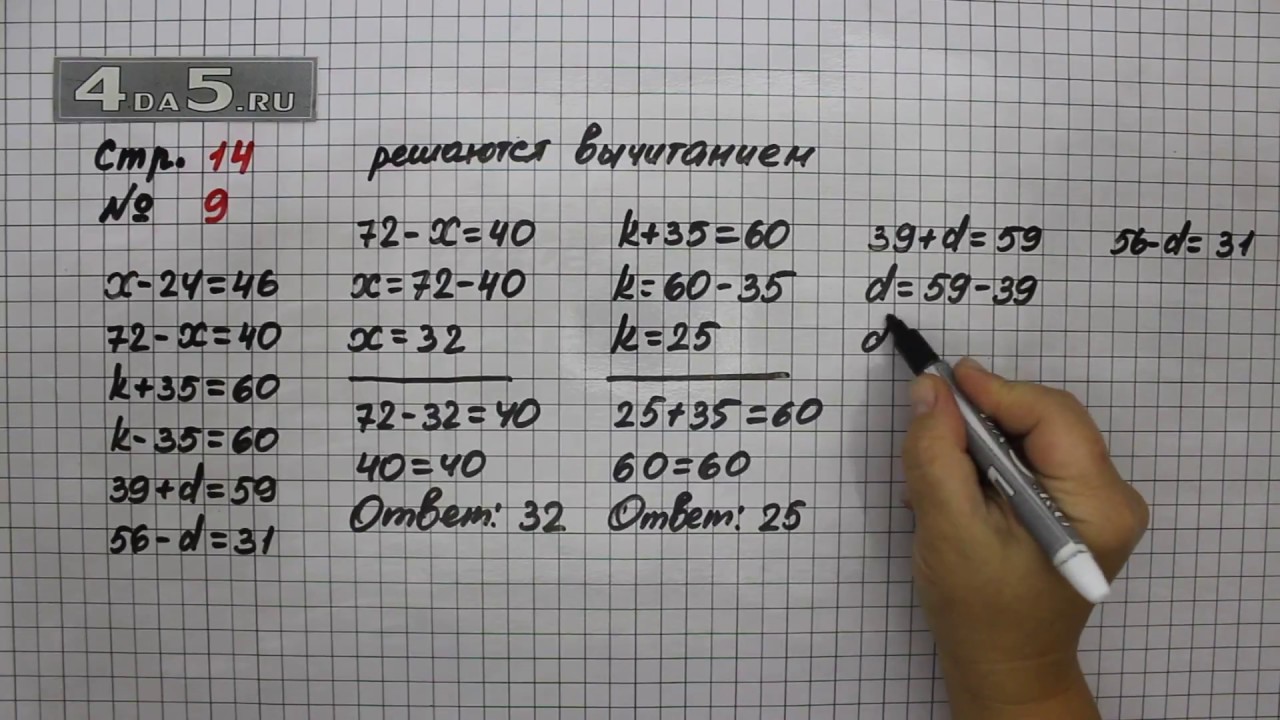 4DA5.RU
Стр. 14
№ 9
решаются вычитанием
x-24=46
72-x=40
k+35=60
k-35=60
39+d=59
56-d=31
72-x=40
x=72-40
x=32
72-32=40
40=40
Ответ: 32
k+35=60
k=60-35
k=25
25+35=60
60=60
Ответ: 25
39+d=59
d=59-39
d
56-d=31